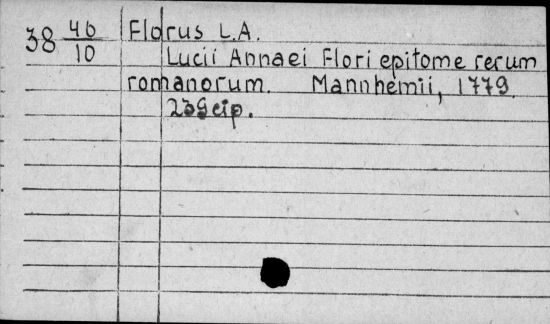 38 46/10 Florus L.A.
Lucii Annaei Flori epitome rerum
romanorum. Mannhemii, 1779.
239 cip.